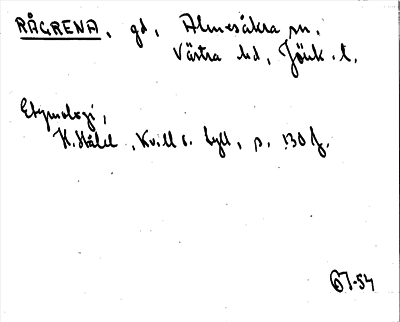 RÅGRENA, gd, Almesåkra sn.
Västra hd, Jönk. l.
Etymologi,
K. Ståhl, Kvill o. byll, p. 130 f.
67-54